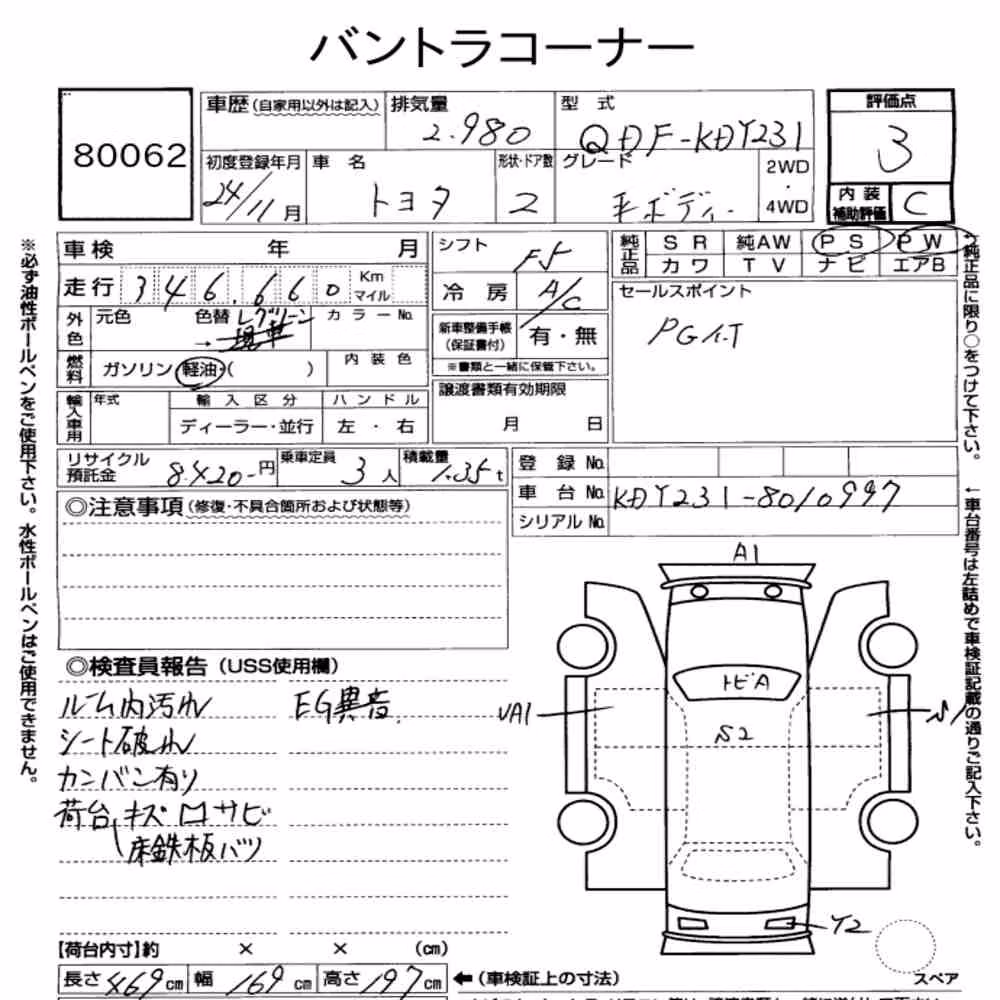 バントラコーナー
80062
車歴(自家用以外は記入) 排気量 2.980 型式 QDF-KDY231
評価点 3
初度登録年月 24/11月 車名 トヨタ 形状・ドア数 2 グレード 平ボディー 2WD・4WD
内装補助評価 C
車検 年 月
シフト F5
純正品 SR 純AW PS PW
カワ TV ナビ エアB
走行 346.660 Km マイル
冷房 A/C
セールスポイント
PG1.T
外色 元色 色替 Lグリーン カラーNo.
→現車
新車整備手帳(保証書付) 有・無
※書類と一緒に保管下さい。
燃料 ガソリン 軽油・( ) 内装色
譲渡書類有効期限
月 日
輸入車用 年式 輸入区分 ハンドル
ディーラー・並行 左・右
リサイクル預託金 8.420-円 乗車定員 3人 積載量 1.35t
登録No.
車台No. KDY231-8010997
シリアルNo.
◎注意事項(修復・不具合箇所および状態等)
◎検査員報告(USS使用欄)
ルーム内汚れ EG異音.
シート破れ
カンバン有り
荷台 キズ 凹 サビ
床鉄板バツ
A1
トビA
UA1
S2
S1
Y2
スペア
【荷台内寸】約 × × (cm)
長さ469cm 幅169cm 高さ197cm ←(車検証上の寸法)
※必ず油性ボールペンをご使用下さい。水性ボールペンはご使用できません。
↑純正品に限り○をつけて下さい。
←車台番号は左詰めで車検証記載の通りご記入下さい。